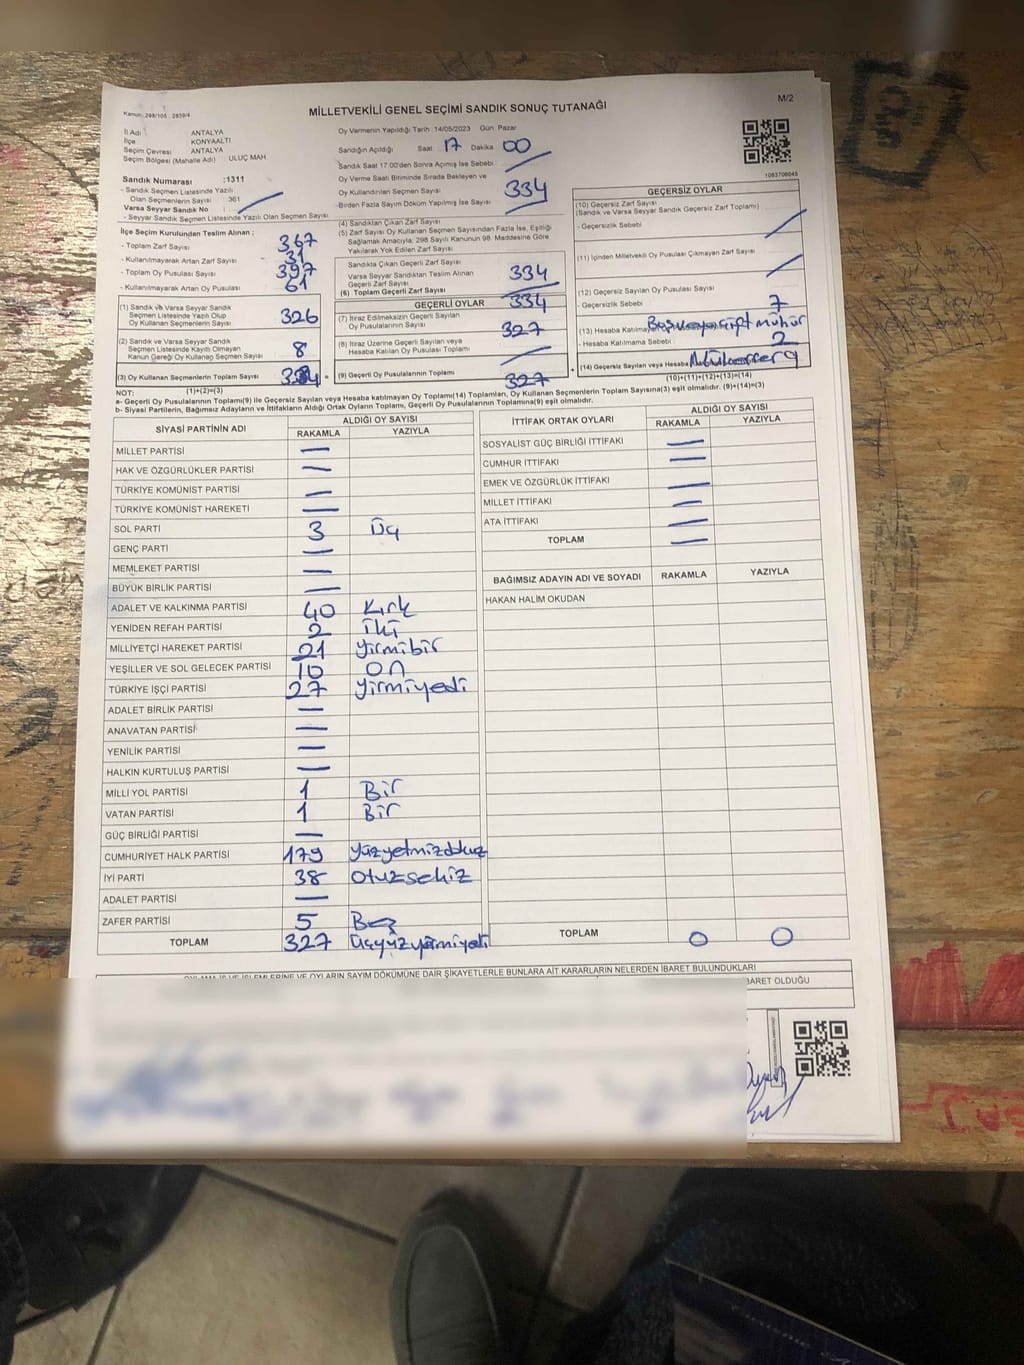 Kanun: 298/105 , 2839/4
MİLLETVEKİLİ GENEL SEÇİMİ SANDIK SONUÇ TUTANAĞI
M/2
İl Adı : ANTALYA
İlçe : KONYAALTI
Seçim Çevresi : ANTALYA
Seçim Bölgesi (Mahalle Adı) : ULUÇ MAH
Sandık Numarası :1311
- Sandık Seçmen Listesinde Yazılı
Olan Seçmenlerin Sayısı : 361
Varsa Seyyar Sandık No
- Seyyar Sandık Seçmen Listesinde Yazılı Olan Seçmen Sayısı
İlçe Seçim Kurulundan Teslim Alınan ;
- Toplam Zarf Sayısı 367
- Kullanılmayarak Artan Zarf Sayısı 31
- Toplam Oy Pusulası Sayısı 397
- Kullanılmayarak Artan Oy Pusulası 61
(1) Sandık ve Varsa Seyyar Sandık
Seçmen Listesinde Yazılı Olup
Oy Kullanan Seçmenlerin Sayısı 326
(2) Sandık ve Varsa Seyyar Sandık
Seçmen Listesinde Kayıtlı Olmayan
Kanun Gereği Oy Kullanan Seçmen Sayısı 8
(3) Oy Kullanan Seçmenlerin Toplam Sayısı =
(1)+(2)=(3)
Oy Vermenin Yapıldığı Tarih :14/05/2023 Gün: Pazar
Sandığın Açıldığı Saat 17 Dakika 00
Sandık Saat 17:00'den Sonra Açılmış İse Sebebi
Oy Verme Saati Bitiminde Sırada Bekleyen ve
Oy Kullandırılan Seçmen Sayısı 334
-Birden Fazla Sayım Döküm Yapılmış İse Sayısı
(4) Sandıktan Çıkan Zarf Sayısı
(5) Zarf Sayısı Oy Kullanan Seçmen Sayısından Fazla İse, Eşitliği
Sağlamak Amacıyla; 298 Sayılı Kanunun 98. Maddesine Göre
Yakılarak Yok Edilen Zarf Sayısı
Sandıkta Çıkan Geçerli Zarf Sayısı
Varsa Seyyar Sandıktan Teslim Alınan
Geçerli Zarf Sayısı 334
(6) Toplam Geçerli Zarf Sayısı 334
GEÇERLİ OYLAR
(7) İtiraz Edilmeksizin Geçerli Sayılan
Oy Pusulalarının Sayısı 327
(8) İtiraz Üzerine Geçerli Sayılan veya
Hesaba Katılan Oy Pusulası Toplamı
(9) Geçerli Oy Pusulalarının Toplamı 327 +
1083706045
GEÇERSİZ OYLAR
(10) Geçersiz Zarf Sayısı
(Sandık ve Varsa Seyyar Sandık Geçersiz Zarf Toplamı)
- Geçersizlik Sebebi
(11) İçinden Milletvekili Oy Pusulası Çıkmayan Zarf Sayısı
(12) Geçersiz Sayılan Oy Pusulası Sayısı 7
- Geçersizlik Sebebi
Boş veya çift mühür
(13) Hesaba Katılmayan
- Hesaba Katılmama Sebebi 2
(14) Geçersiz Sayılan veya Hesaba 9
(10)+(11)+(12)+(13)=(14)
NOT:
a- Geçerli Oy Pusulalarının Toplamı(9) ile Geçersiz Sayılan veya Hesaba katılmayan Oy Toplamı(14) Toplamları, Oy Kullanan Seçmenlerin Toplam Sayısına(3) eşit olmalıdır. (9)+(14)=(3)
b- Siyasi Partilerin, Bağımsız Adayların ve İttifakların Aldığı Ortak Oyların Toplamı, Geçerli Oy Pusulalarının Toplamına(9) eşit olmalıdır.
SİYASİ PARTİNİN ADI
ALDIĞI OY SAYISI
RAKAMLA YAZIYLA
MİLLET PARTİSİ —
HAK VE ÖZGÜRLÜKLER PARTİSİ —
TÜRKİYE KOMÜNİST PARTİSİ —
TÜRKİYE KOMÜNİST HAREKETİ —
SOL PARTİ 3 Üç
GENÇ PARTİ —
MEMLEKET PARTİSİ —
BÜYÜK BİRLİK PARTİSİ —
ADALET VE KALKINMA PARTİSİ 40 Kırk
YENİDEN REFAH PARTİSİ 2 İki
MİLLİYETÇİ HAREKET PARTİSİ 21 yirmibir
YEŞİLLER VE SOL GELECEK PARTİSİ 10 on
TÜRKİYE İŞÇİ PARTİSİ 27 yirmiyedi
ADALET BİRLİK PARTİSİ —
ANAVATAN PARTİSİ —
YENİLİK PARTİSİ —
HALKIN KURTULUŞ PARTİSİ —
MİLLİ YOL PARTİSİ 1 Bir
VATAN PARTİSİ 1 Bir
GÜÇ BİRLİĞİ PARTİSİ —
CUMHURİYET HALK PARTİSİ 179 yüzyetmişdokuz
İYİ PARTİ 38 otuzsekiz
ADALET PARTİSİ —
ZAFER PARTİSİ 5 Beş
TOPLAM 327 üçyüzyirmiyedi
İTTİFAK ORTAK OYLARI
ALDIĞI OY SAYISI
RAKAMLA YAZIYLA
SOSYALİST GÜÇ BİRLİĞİ İTTİFAKI —
CUMHUR İTTİFAKI —
EMEK VE ÖZGÜRLÜK İTTİFAKI —
MİLLET İTTİFAKI —
ATA İTTİFAKI —
TOPLAM —
BAĞIMSIZ ADAYIN ADI VE SOYADI RAKAMLA YAZIYLA
HAKAN HALİM OKUDAN
TOPLAM 0 0
OYLAMA İŞ VE İŞLEMLERİNE VE OYLARIN SAYIM DÖKÜMÜNE DAİR ŞİKAYETLERLE BUNLARA AİT KARARLARIN NELERDEN İBARET BULUNDUKLARI
BARET OLDUĞU